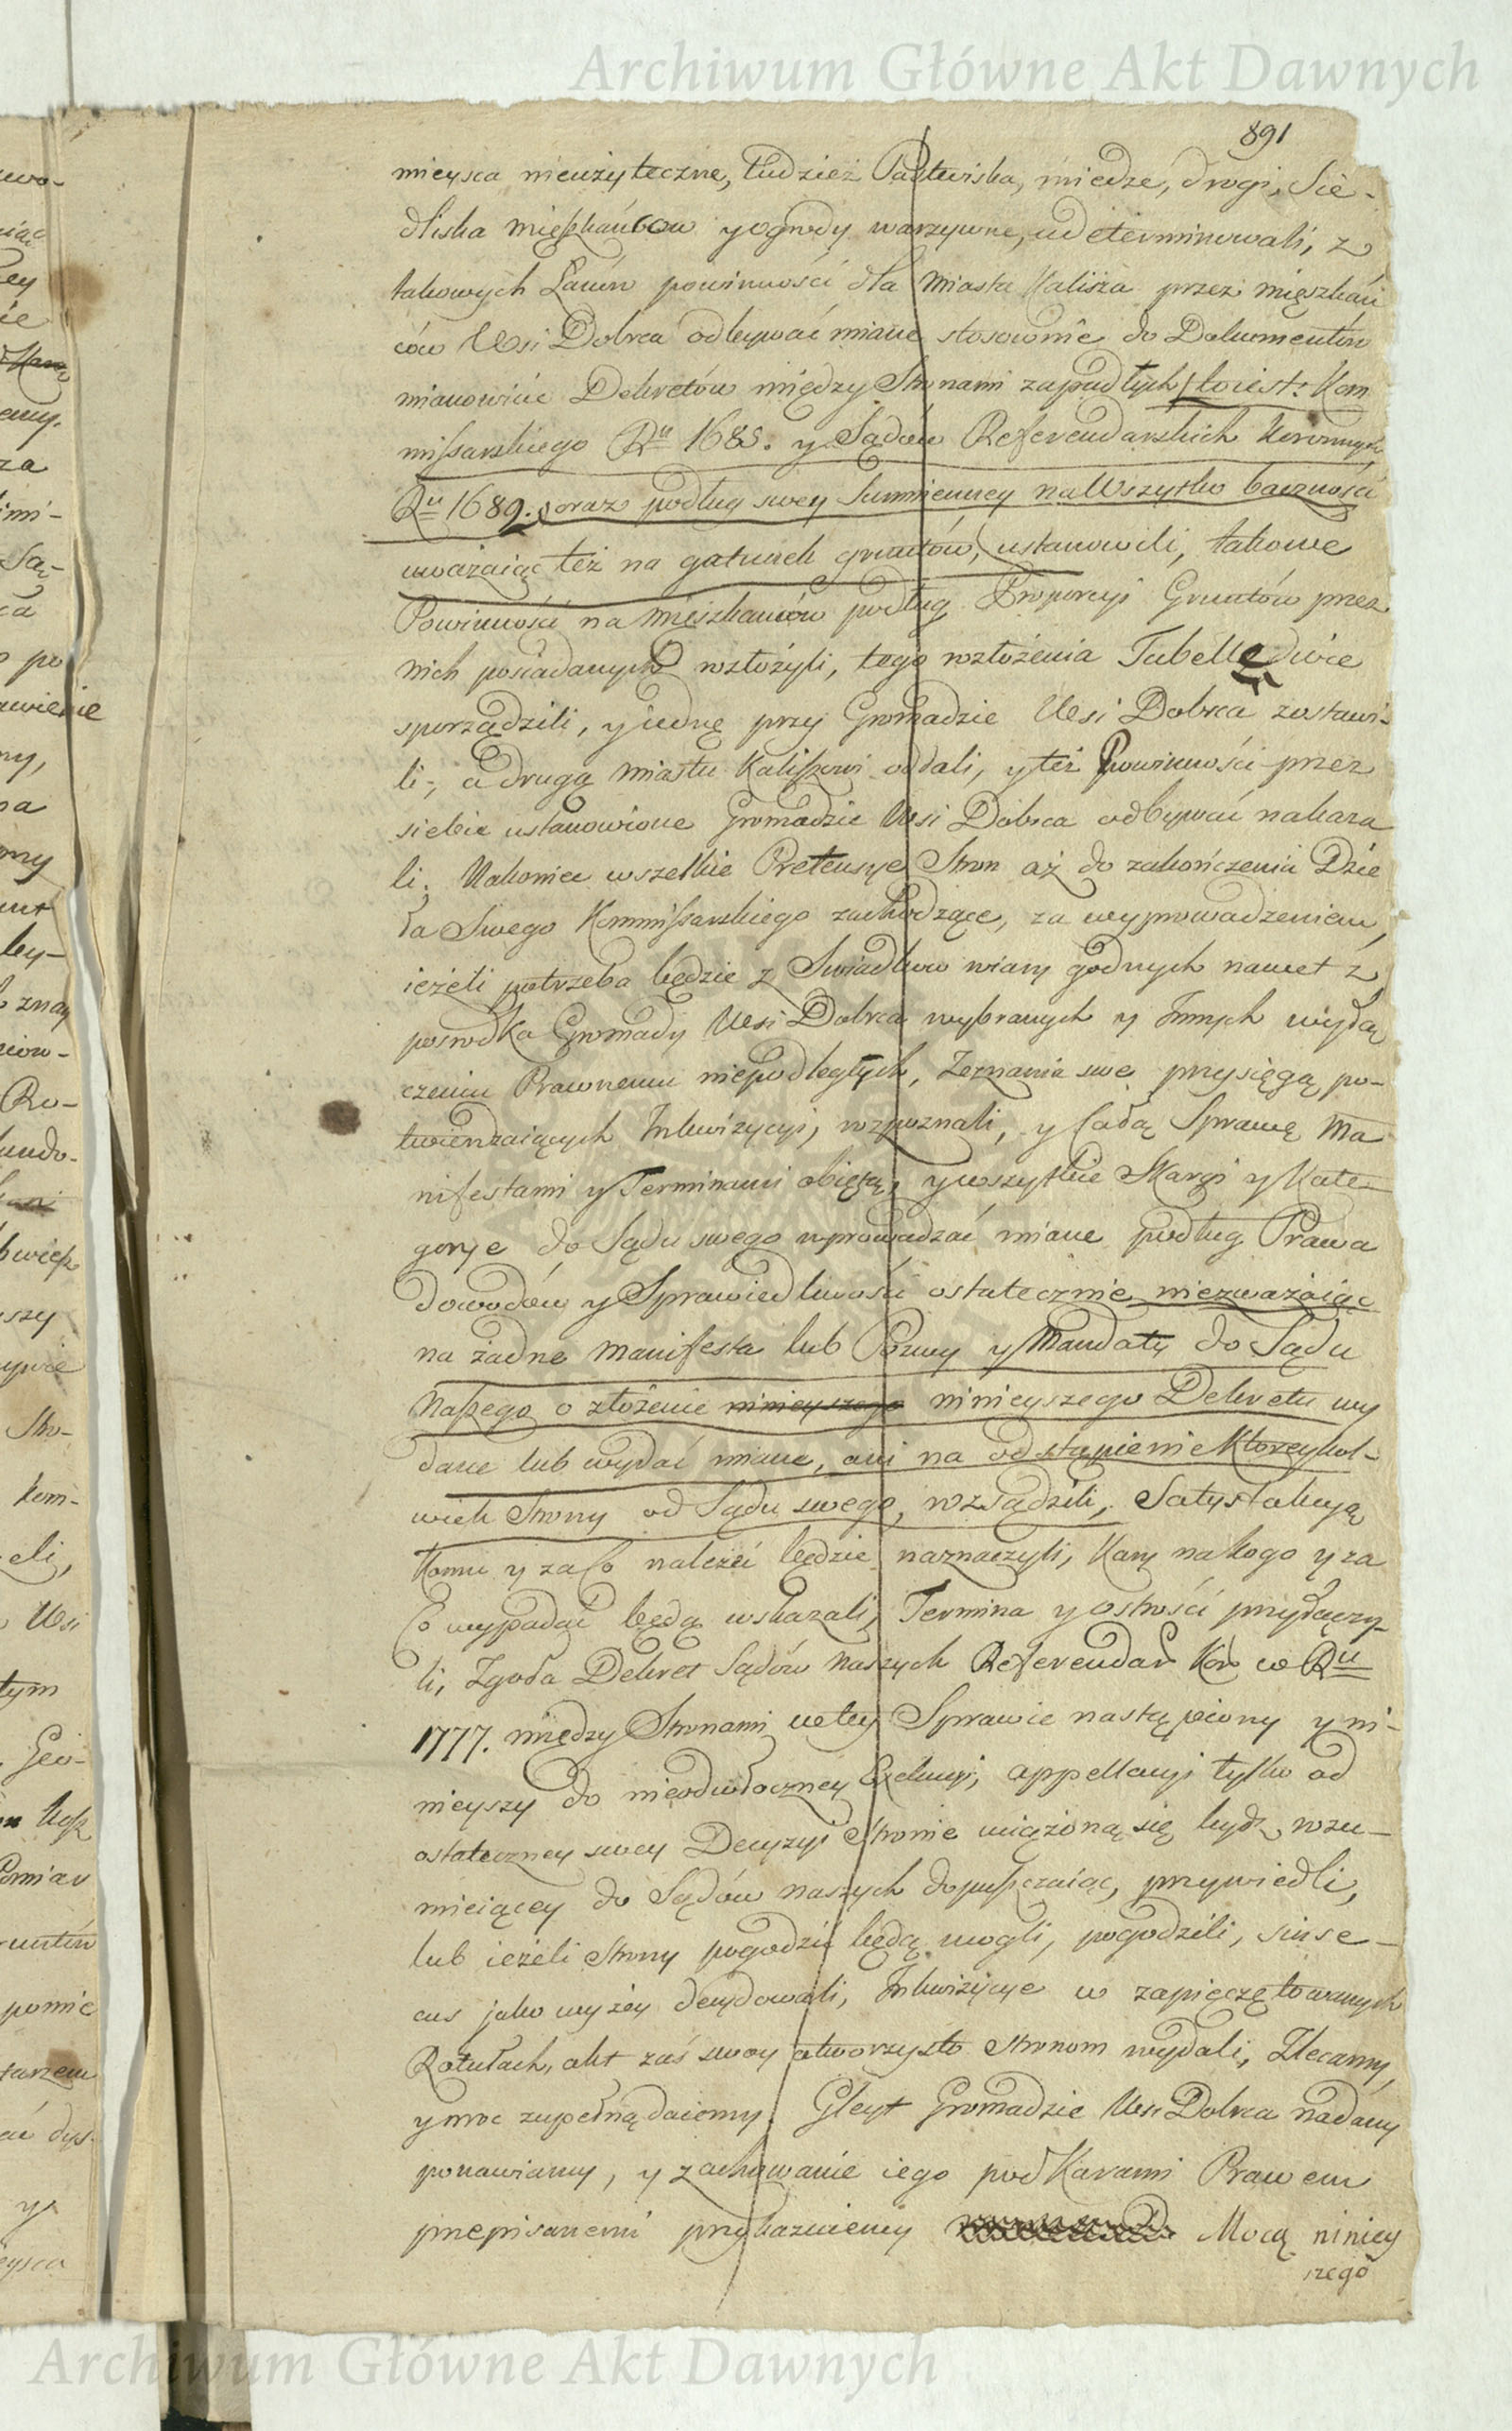 Archiwum Główne Akt Dawnych
891
mieysca nieużyteczne, tudzież Pastwiska, miedze, drogi, Sie-
dliska mięszkańcow y ogrody warzywne, udeterminowali, z
takowych Łanów powinności dla Miasta Kalisza przez mięszkań
ców Wsi Dobrca odbywać miane stosownie do Dokumentów
mianowicie Dekretów między Stronami zapadłych to iest: Kom
missarskiego Ru 1685. y Sądów Referendarskich Koronnych
Ru 1689. oraz podług swey Sumnienney na Wszytko baczności
uważaiąc też na gatunek gruntów, ustanowili, takowe
Powinności na mięszkańców podług Proporcyi Gruntów przez
nich posiadanych rozłożyli, tego rozłożenia Tabelle dwie
sporządzili, y iednę przy Gromadzie Wsi Dobrca zostawi-
li, a drugą miastu Kaliszowi oddali, y też Powinności przez
siebie ustanowione Gromadzie Wsi Dobrca odbywać nakaza
li. Nakoniec wszelkie Pretensye Stron aż do zakończenia Dzie
ła Swego Kommissarskiego zachodzące, za wyprowadzeniem,
ieżeli potrzeba będzie z Swiadkow wiary godnych nawet z
posrodka Gromady Wsi Dobrca wybranych y Innych wyłą
czeniu Prawnemu niepodległych, Zeznania swe przysięgą po-
twierdzaiących Inkwizycyi, rozpoznali, y Całą Sprawę Ma
nifestami y Terminami obiętą, y wszytkie Skargi y Kate-
gorye do Sądu swego wprowadzać miane podług Prawa
dowodów y Sprawiedliwości ostatecznie niezważaiąc
na żadne Manifesta lub Pozwy y Mandaty do Sądu
Naszego o złożenie ninieyszego Dekretu wy
dane lub wydać miane, ani na odstąpienie Ktoreykol-
wiek Strony od Sądu swego, rozsądzili, Satysfakcyą
Komu y za Co należeć będzie naznaczyli, Kary na kogo y za
Co wypadać będą wskazali, Termina y ostrości przyłączy-
li, Zgoła Dekret Sądów Naszych Referendar Kor w Ru
1777. między Stronami w tey Sprawie nastąpiony y ni-
nieyszy do nieodwłoczney Exekucyi, appellacyi tylko od
ostateczney swey Decyzyi Stronie uciążoną się bydź rozu-
mieiącey do Sądów naszych dopuszczaiąc, przywiedli,
lub ieżeli Strony pogodzić będą mogli, pogodzili, sinse-
cus jako wyżey decydowali, Inkwizycye w zapieczętowanych
Rotułach, akt zaś swoy otworzysto stronom wydali, Zlecamy,
y moc zupełną daiemy. Gleyt Gromadzie Wsi Dobrca nadany
ponawiamy, y zachowanie iego pod Karami Prawem
przepisanemi przykazuiemy Mocą niniey
szego
Archiwum Główne Akt Dawnych